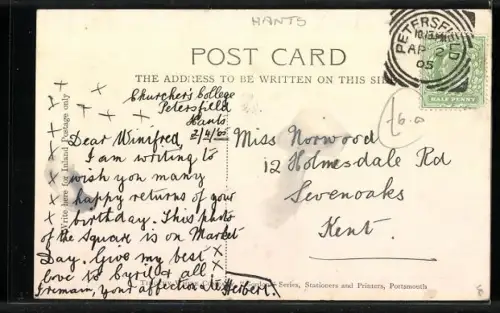 HANTS
POST CARD
THE ADDRESS TO BE WRITTEN ON THIS SI
PETERSFIELD
AP 2
05
HALF PENNY
£6.00
Write here for Inland Postage only
Churcher's College
Petersfield
Hants
2/4/05
Dear Winifred,
I am writing to
wish you many
happy returns of your
birthday. This photo
of the Square is on Market
Day. Give my best
love to Cyril & all
I remain, your affectionate Herbert.
Miss Norwood
12 Holmesdale Rd
Sevenoaks
Kent.
Series, Stationers and Printers, Portsmouth